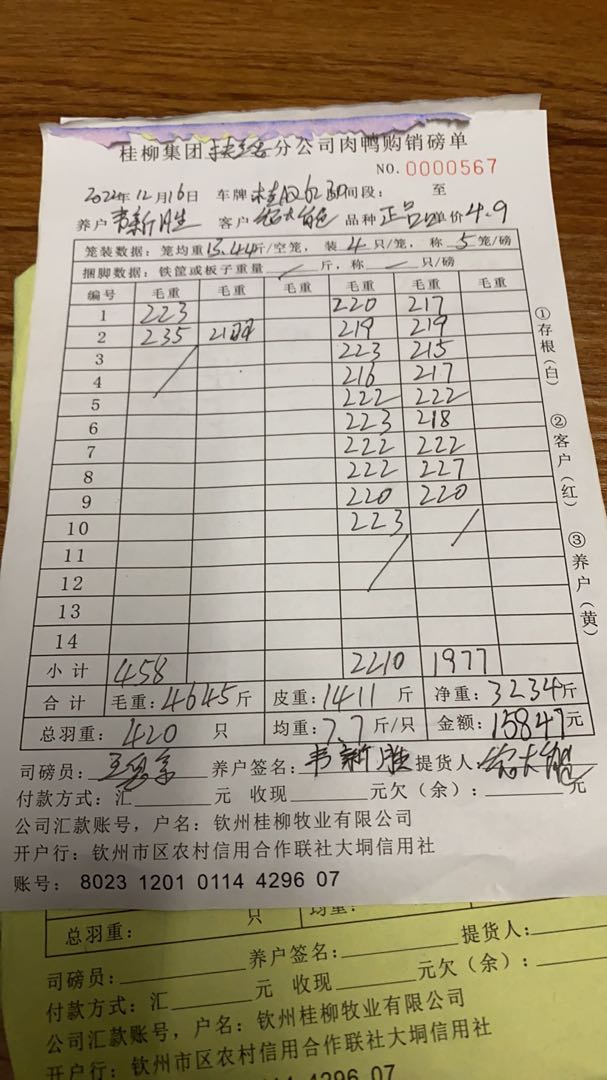 桂柳集团 分公司肉鸭购销磅单
NO. 0000567
2022年12月16日 车牌 桂 时间段： 至
养户 韦新胜 客户 品种 正品 单价 4.9
笼装数据：笼均重 13.44 斤/空笼，装 4 只/笼，称 5 笼/磅
捆脚数据：铁筐或板子重量 / 斤，称 / 只/磅
编号 毛重 毛重 毛重 毛重 毛重 毛重
1 223 220 217
2 235 219 219
3 223 215
4 216 217
5 222 222
6 223 218
7 222 222
8 222 227
9 220 220
10 223
11
12
13
14
小计 458 2210 1977
合计 毛重：4645斤 皮重：1411 斤 净重：3234斤
总羽重：420 只 均重：7.7 斤/只 金额：15847元
①存根（白）
②客户（红）
③养户（黄）
司磅员： 养户签名：韦新胜 提货人：
付款方式：汇 元 收现 元欠（余）： 元
公司汇款账号，户名：钦州桂柳牧业有限公司
开户行：钦州市区农村信用合作联社大垌信用社
账号： 8023 1201 0114 4296 07
总羽重： 只 均重：
司磅员： 养户签名： 提货人：
付款方式：汇 元 收现 元欠（余）：
公司汇款账号，户名：钦州桂柳牧业有限公司
开户行：钦州市区农村信用合作联社大垌信用社
0114 4296 07